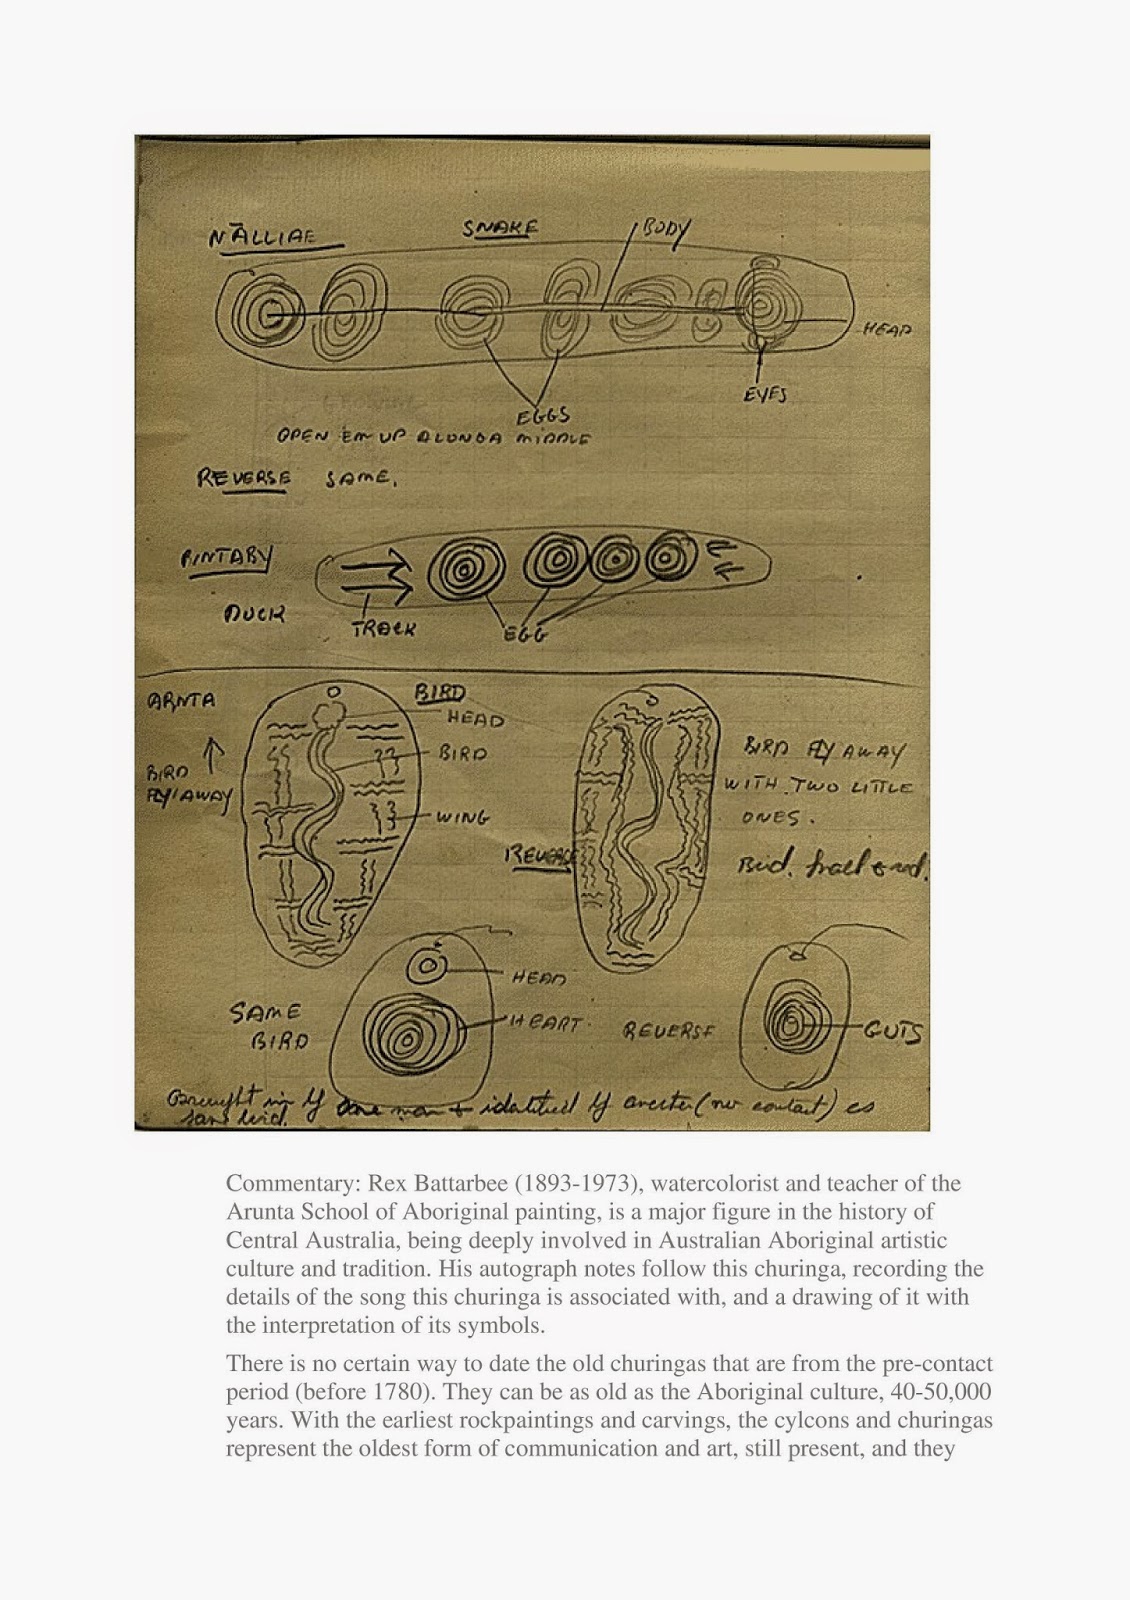 NĀLLIAE SNAKE BODY
HEAD
EYES
EGGS
OPEN 'EM UP ALONGA MIDDLE
REVERSE SAME.
DUCK TRACK EGG
ARNTA BIRD
HEAD
BIRD
BIRD FLY AWAY
WING
REVERSE
BIRD FLY AWAY
WITH TWO LITTLE
ONES.
Bird.
SAME
BIRD
HEAD
HEART.
REVERSE
GUTS
Brought in by one man + identified by (no contact) as
same bird.
Commentary: Rex Battarbee (1893-1973), watercolorist and teacher of the
Arunta School of Aboriginal painting, is a major figure in the history of
Central Australia, being deeply involved in Australian Aboriginal artistic
culture and tradition. His autograph notes follow this churinga, recording the
details of the song this churinga is associated with, and a drawing of it with
the interpretation of its symbols.
There is no certain way to date the old churingas that are from the pre-contact
period (before 1780). They can be as old as the Aboriginal culture, 40-50,000
years. With the earliest rockpaintings and carvings, the cylcons and churingas
represent the oldest form of communication and art, still present, and they